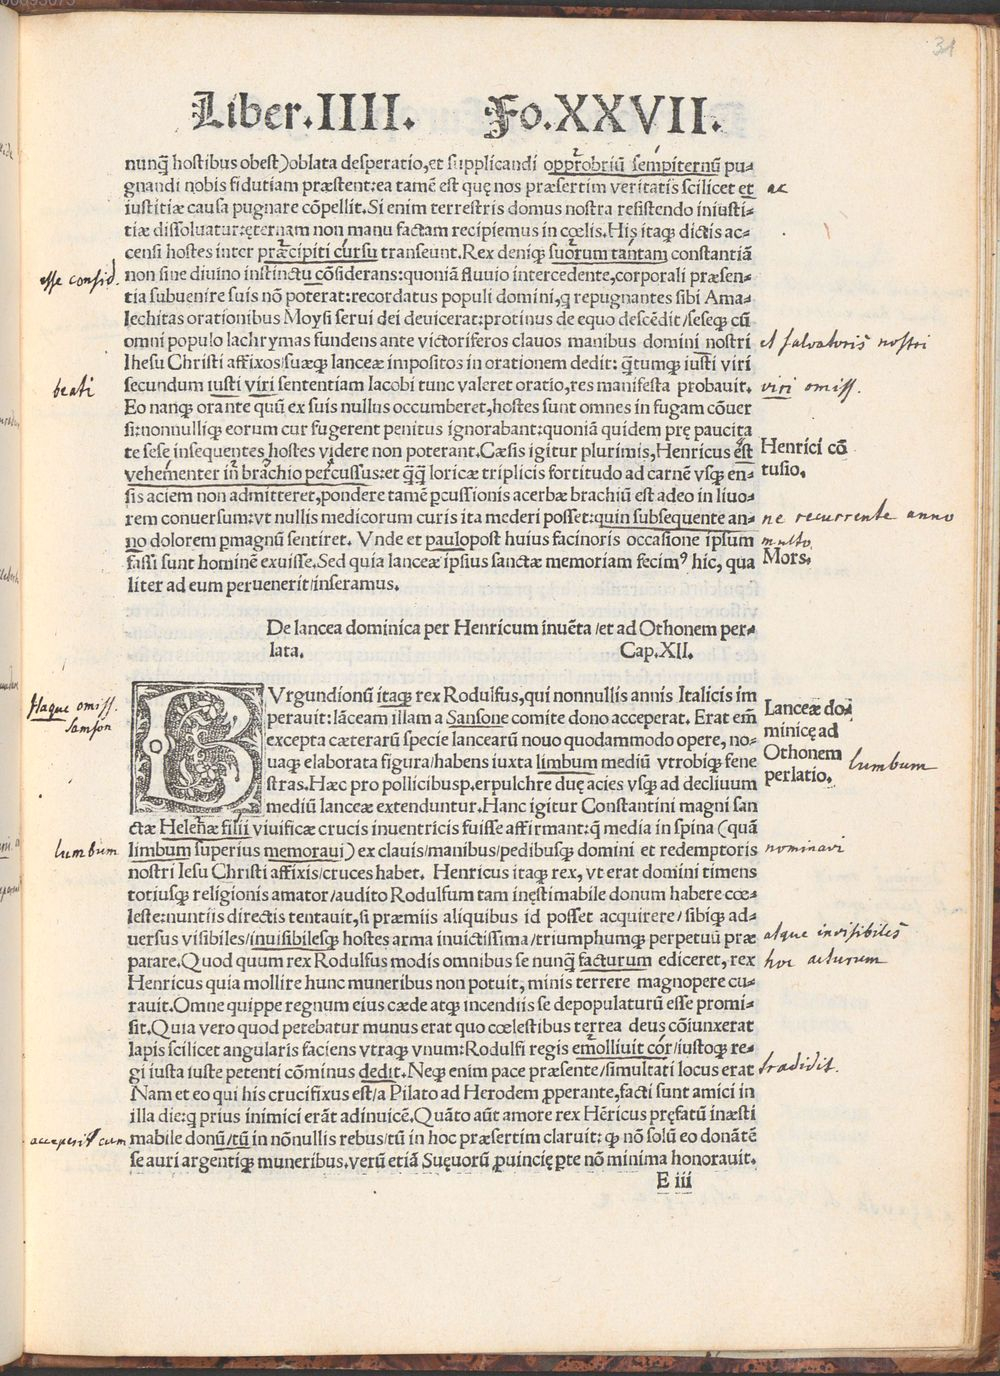 31
Liber.IIII. Fo.XXVII.
nunq̃ hostibus obest)oblata desperatio,et supplicandi opprobriũ sempiternũ pu⸗
gnandi nobis fidutiam præstent:ea tamẽ est quę nos præsertim veritatis scilicet et
ac
iustitiæ causa pugnare cõpellit.Si enim terrestris domus nostra resistendo iniusti⸗
tiæ dissoluatur:ęternam non manu factam recipiemus in cœlis.His itaqꝫ dictis ac⸗
censi hostes inter præcipiti cursu transeunt.Rex deniqꝫ suorum tantam constantiã
esse consid.
non sine diuino instinctu cõsiderans:quoniã fluuio intercedente,corporali præsen⸗
tia subuenire suis nõ poterat:recordatus populi domini,q repugnantes sibi Ama⸗
lechitas orationibus Moysi serui dei deuicerat:protinus de equo descẽdit/seseqꝫ cũ
omni populo lachrymas fundens ante victoriferos clauos manibus domini nostri
et salvatoris nostri
Ihesu Christi affixos/suæqꝫ lanceæ impositos in orationem dedit: q̃tumqꝫ iusti viri
beati
secundum iusti viri sententiam Iacobi tunc valeret oratio,res manifesta probauit.
viri omiss.
Eo nanqꝫ orante quũ ex suis nullus occumberet,hostes sunt omnes in fugam cõuer
si:nonnulliqꝫ eorum cur fugerent penitus ignorabant:quoniã quidem prę paucita
te sese insequentes hostes videre non poterant.Cæsis igitur plurimis,Henricus est
Henrici cõ
tusio.
vehementer in brachio percussus:et q̃q̃ loricæ triplicis fortitudo ad carnẽ vsqꝫ en⸗
sis aciem non admitteret,pondere tamẽ ꝑcussionis acerbæ brachiũ est adeo in liuo⸗
rem conuersum:vt nullis medicorum curis ita mederi posset:quin subsequente an⸗
ne recurrente anno
no dolorem ꝑmagnũ sentiret. Vnde et paulopost huius facinoris occasione ipsum
multo
Mors.
fassi sunt hominẽ exuisse.Sed quia lanceæ ipsius sanctæ memoriam fecimꝰ hic, qua
liter ad eum peruenerit/inseramus.
De lancea dominica per Henricum inuẽta/et ad Othonem per⸗
lata. Cap.XII.
Itaque omiss.
Samson
BVrgundionũ itaqꝫ rex Rodulfus,qui nonnullis annis Italicis im
perauit:lãceam illam a Sansone comite dono acceperat. Erat em̃
Lanceæ do⸗
minicę ad
Othonem
perlatio.
excepta cæterarũ specie lancearũ nouo quodammodo opere, no⸗
uaqꝫ elaborata figura/habens iuxta limbum mediũ vtrobiqꝫ fene
lumbum
stras.Hæc pro pollicibusp.erpulchre duę acies vsqꝫ ad decliuum
mediũ lanceæ extenduntur.Hanc igitur Constantini magni san
ctæ Helenæ filii viuificæ crucis inuentricis fuisse affirmant:q̃ media in spina (quã
lumbum
limbum superius memoraui) ex clauis/manibus/pedibusqꝫ domini et redemptoris
nominavi
nostri Iesu Christi affixis/cruces habet. Henricus itaqꝫ rex, vt erat domini timens
totiusqꝫ religionis amator/audito Rodulfum tam inęstimabile donum habere cœ⸗
leste:nuntiis directis tentauit,si præmiis aliquibus id posset acquirere/sibiqꝫ ad⸗
uersus visibiles/inuisibilesqꝫ hostes arma inuictissima/triumphumqꝫ perpetuũ præ
atque invisibiles
parare.Quod quum rex Rodulfus modis omnibus se nunq̃ facturum ediceret, rex
hoc acturum
Henricus quia mollire hunc muneribus non potuit, minis terrere magnopere cu⸗
rauit.Omne quippe regnum eius cæde atqꝫ incendiis se depopulaturũ esse promi⸗
sit.Quia vero quod petebatur munus erat quo cœlestibus terrea deus cõiunxerat
lapis scilicet angularis faciens vtraqꝫ vnum:Rodulfi regis emolliuit cor/iustoqꝫ re⸗
gi iusta iuste petenti cõminus dedit.Neqꝫ enim pace præsente/simultati locus erat
tradidit.
Nam et eo qui his crucifixus est/a Pilato ad Herodem ꝓperante,facti sunt amici in
illa die:q prius inimici erãt adinuicẽ.Quãto aũt amore rex Hẽricus pręfatũ inæsti
acceperit cum
mabile donũ/tũ in nõnullis rebus/tũ in hoc præsertim claruit: qꝫ nõ solũ eo donãtẽ
se auri argentiqꝫ muneribus.verũ etiã Suęuorũ ꝓuincię ꝑte nõ minima honorauit.
E iii